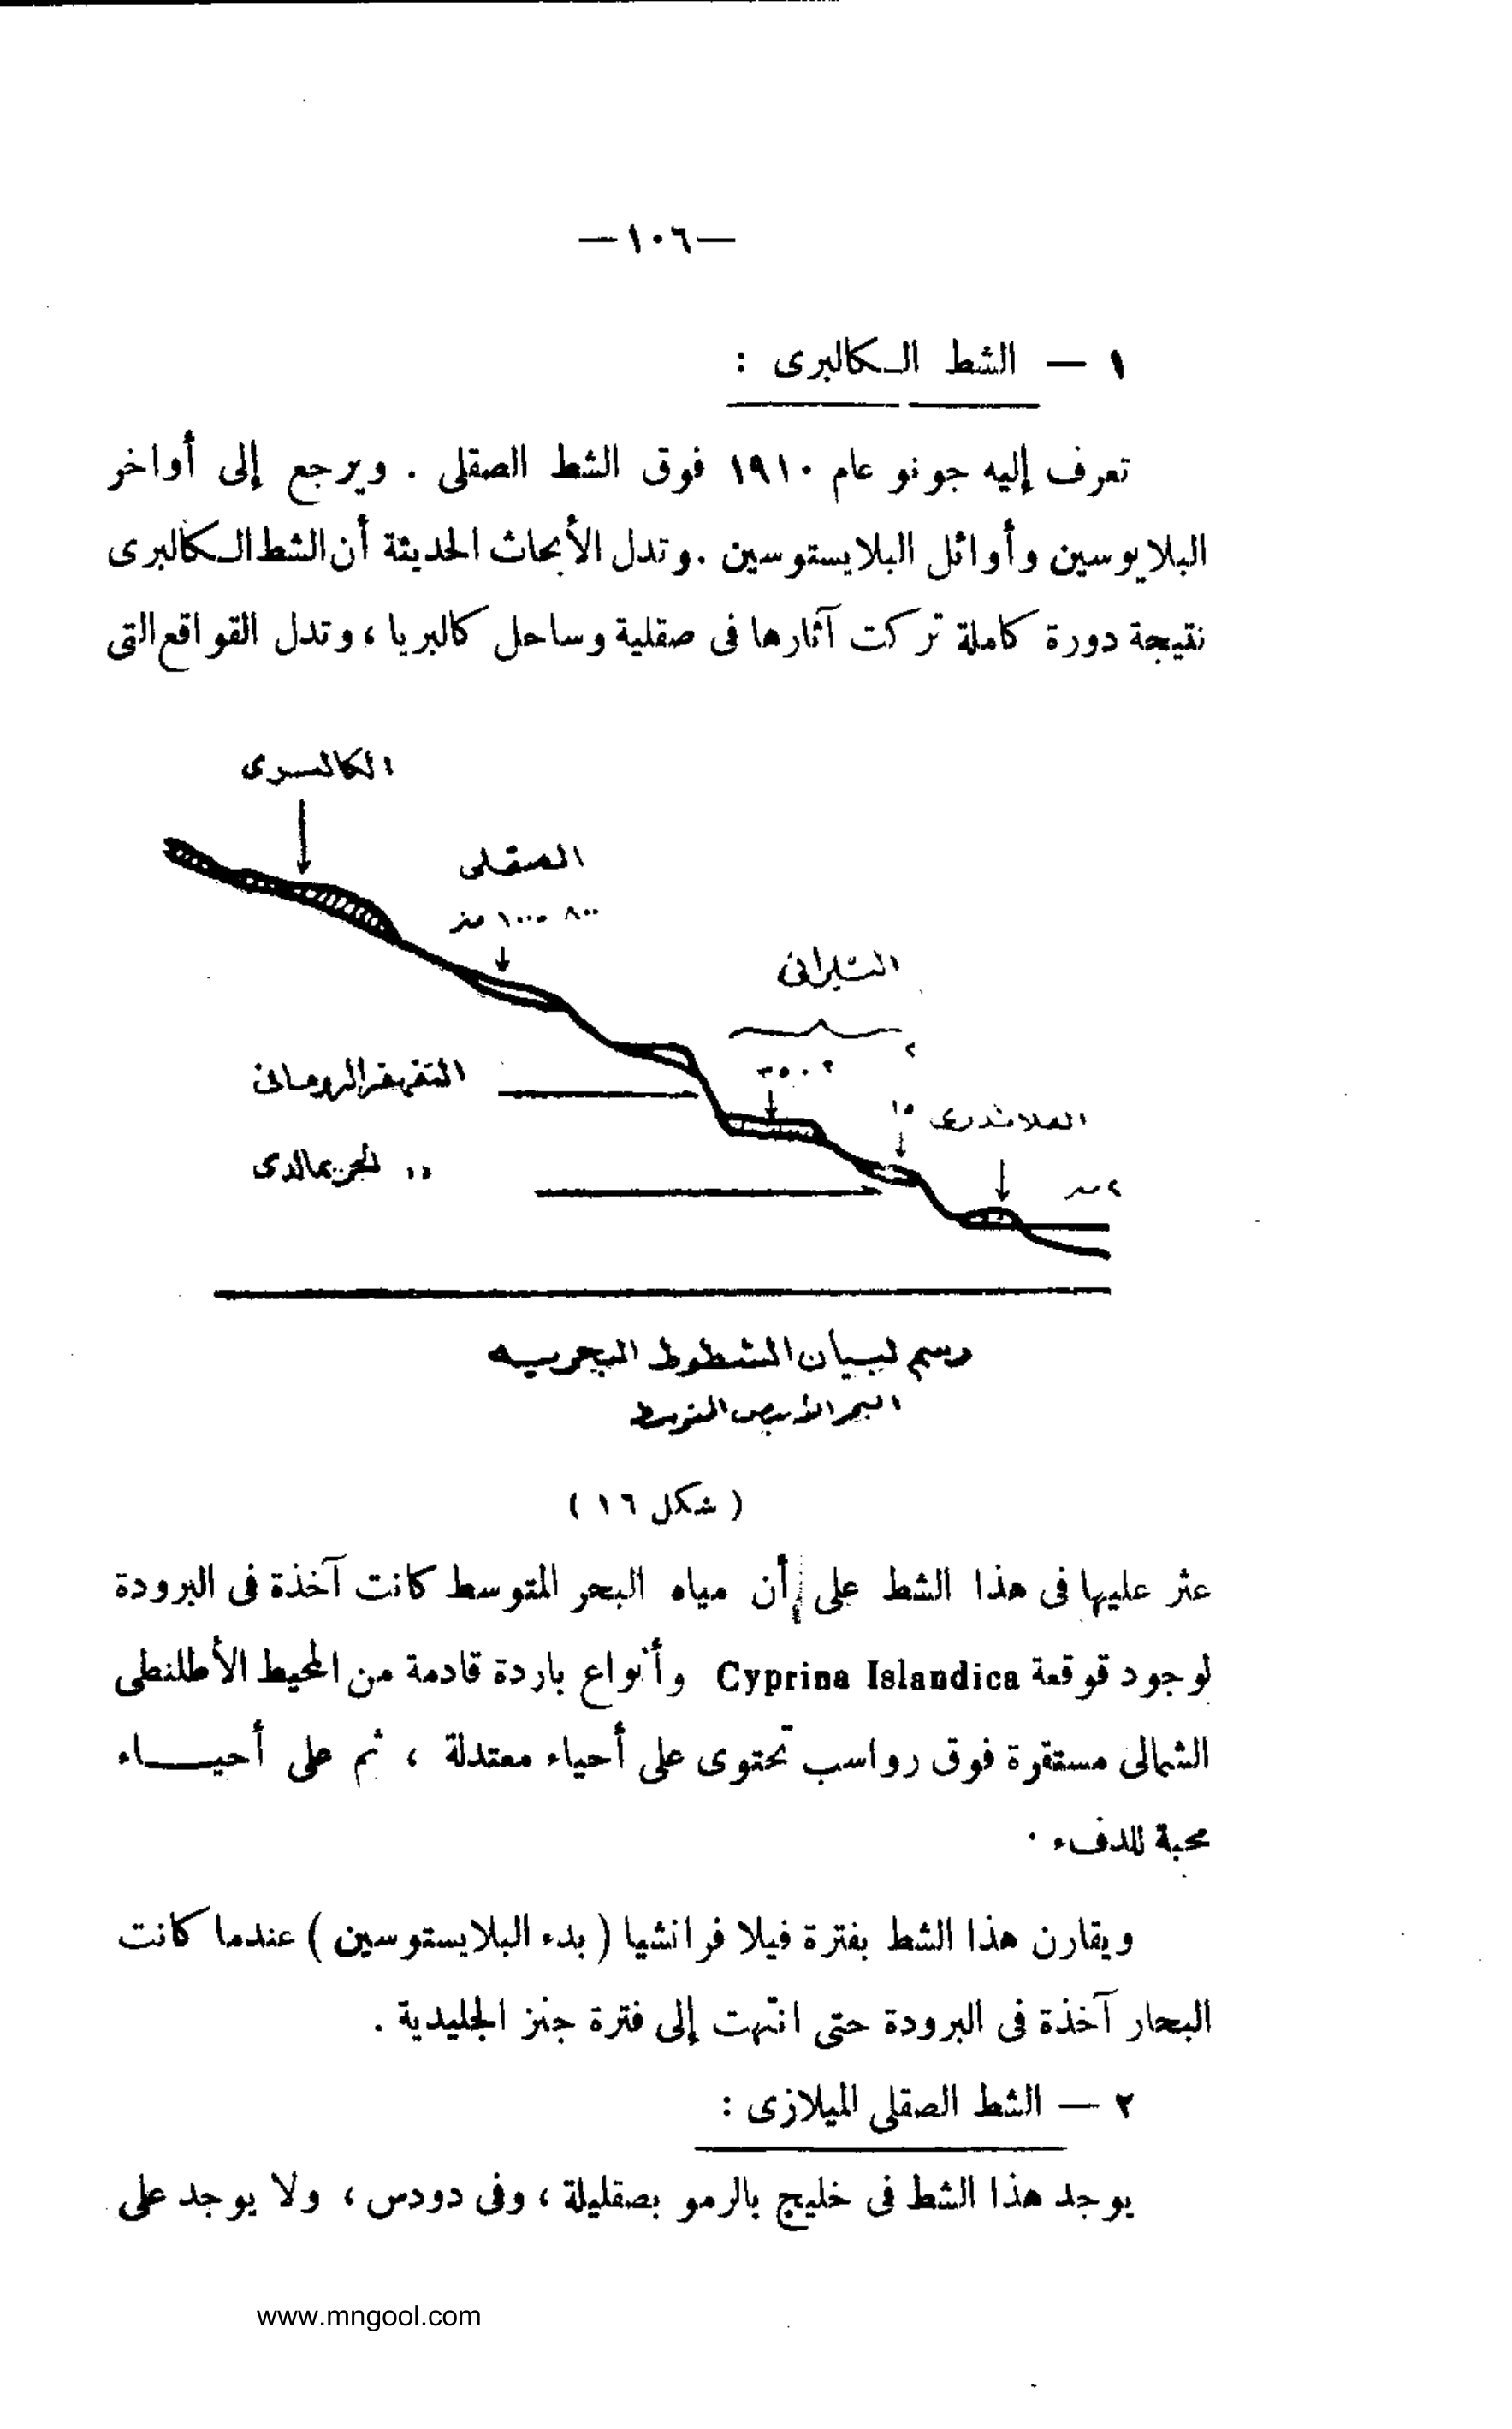 —١٠٦—
١ — الشط الكالبرى :
تعرف إليه جونو عام ١٩١٠ فوق الشط الصقلى . ويرجع إلى أواخر
البلايوسين وأوائل البلايستوسين . وتدل الأبحاث الحديثة أن الشط الكالبرى
نتيجة دورة كاملة تركت آثارها فى صقلية وساحل كالبريا ، وتدل القواقع التى
الكالبرى
الصقلى
٨٠٠ - ١٠٠٠ متر
التيرانى
التقهقر الرومانى
الملاندرى
١٥
،، الجريمالدى
رسم لبيان الشطوط البحريه
البحر الأبيض المتوسط
( شكل ١٦ )
عثر عليها فى هذا الشط على أن مياه البحر المتوسط كانت آخذة فى البرودة
لوجود قوقعة Cyprina Islandica وأنواع باردة قادمة من المحيط الأطلنطى
الشمالى مستقرة فوق رواسب تحتوى على أحياء معتدلة ، ثم على أحياء
محبة للدفء .
ويقارن هذا الشط بفترة فيلا فرانشيا ( بدء البلايستوسين ) عندما كانت
البحار آخذة فى البرودة حتى انتهت إلى فترة جنز الجليدية .
٢ — الشط الصقلى الميلازى :
يوجد هذا الشط فى خليج بالرمو بصقليلة ، وفى دودس ، ولا يوجد على
www.mngool.com